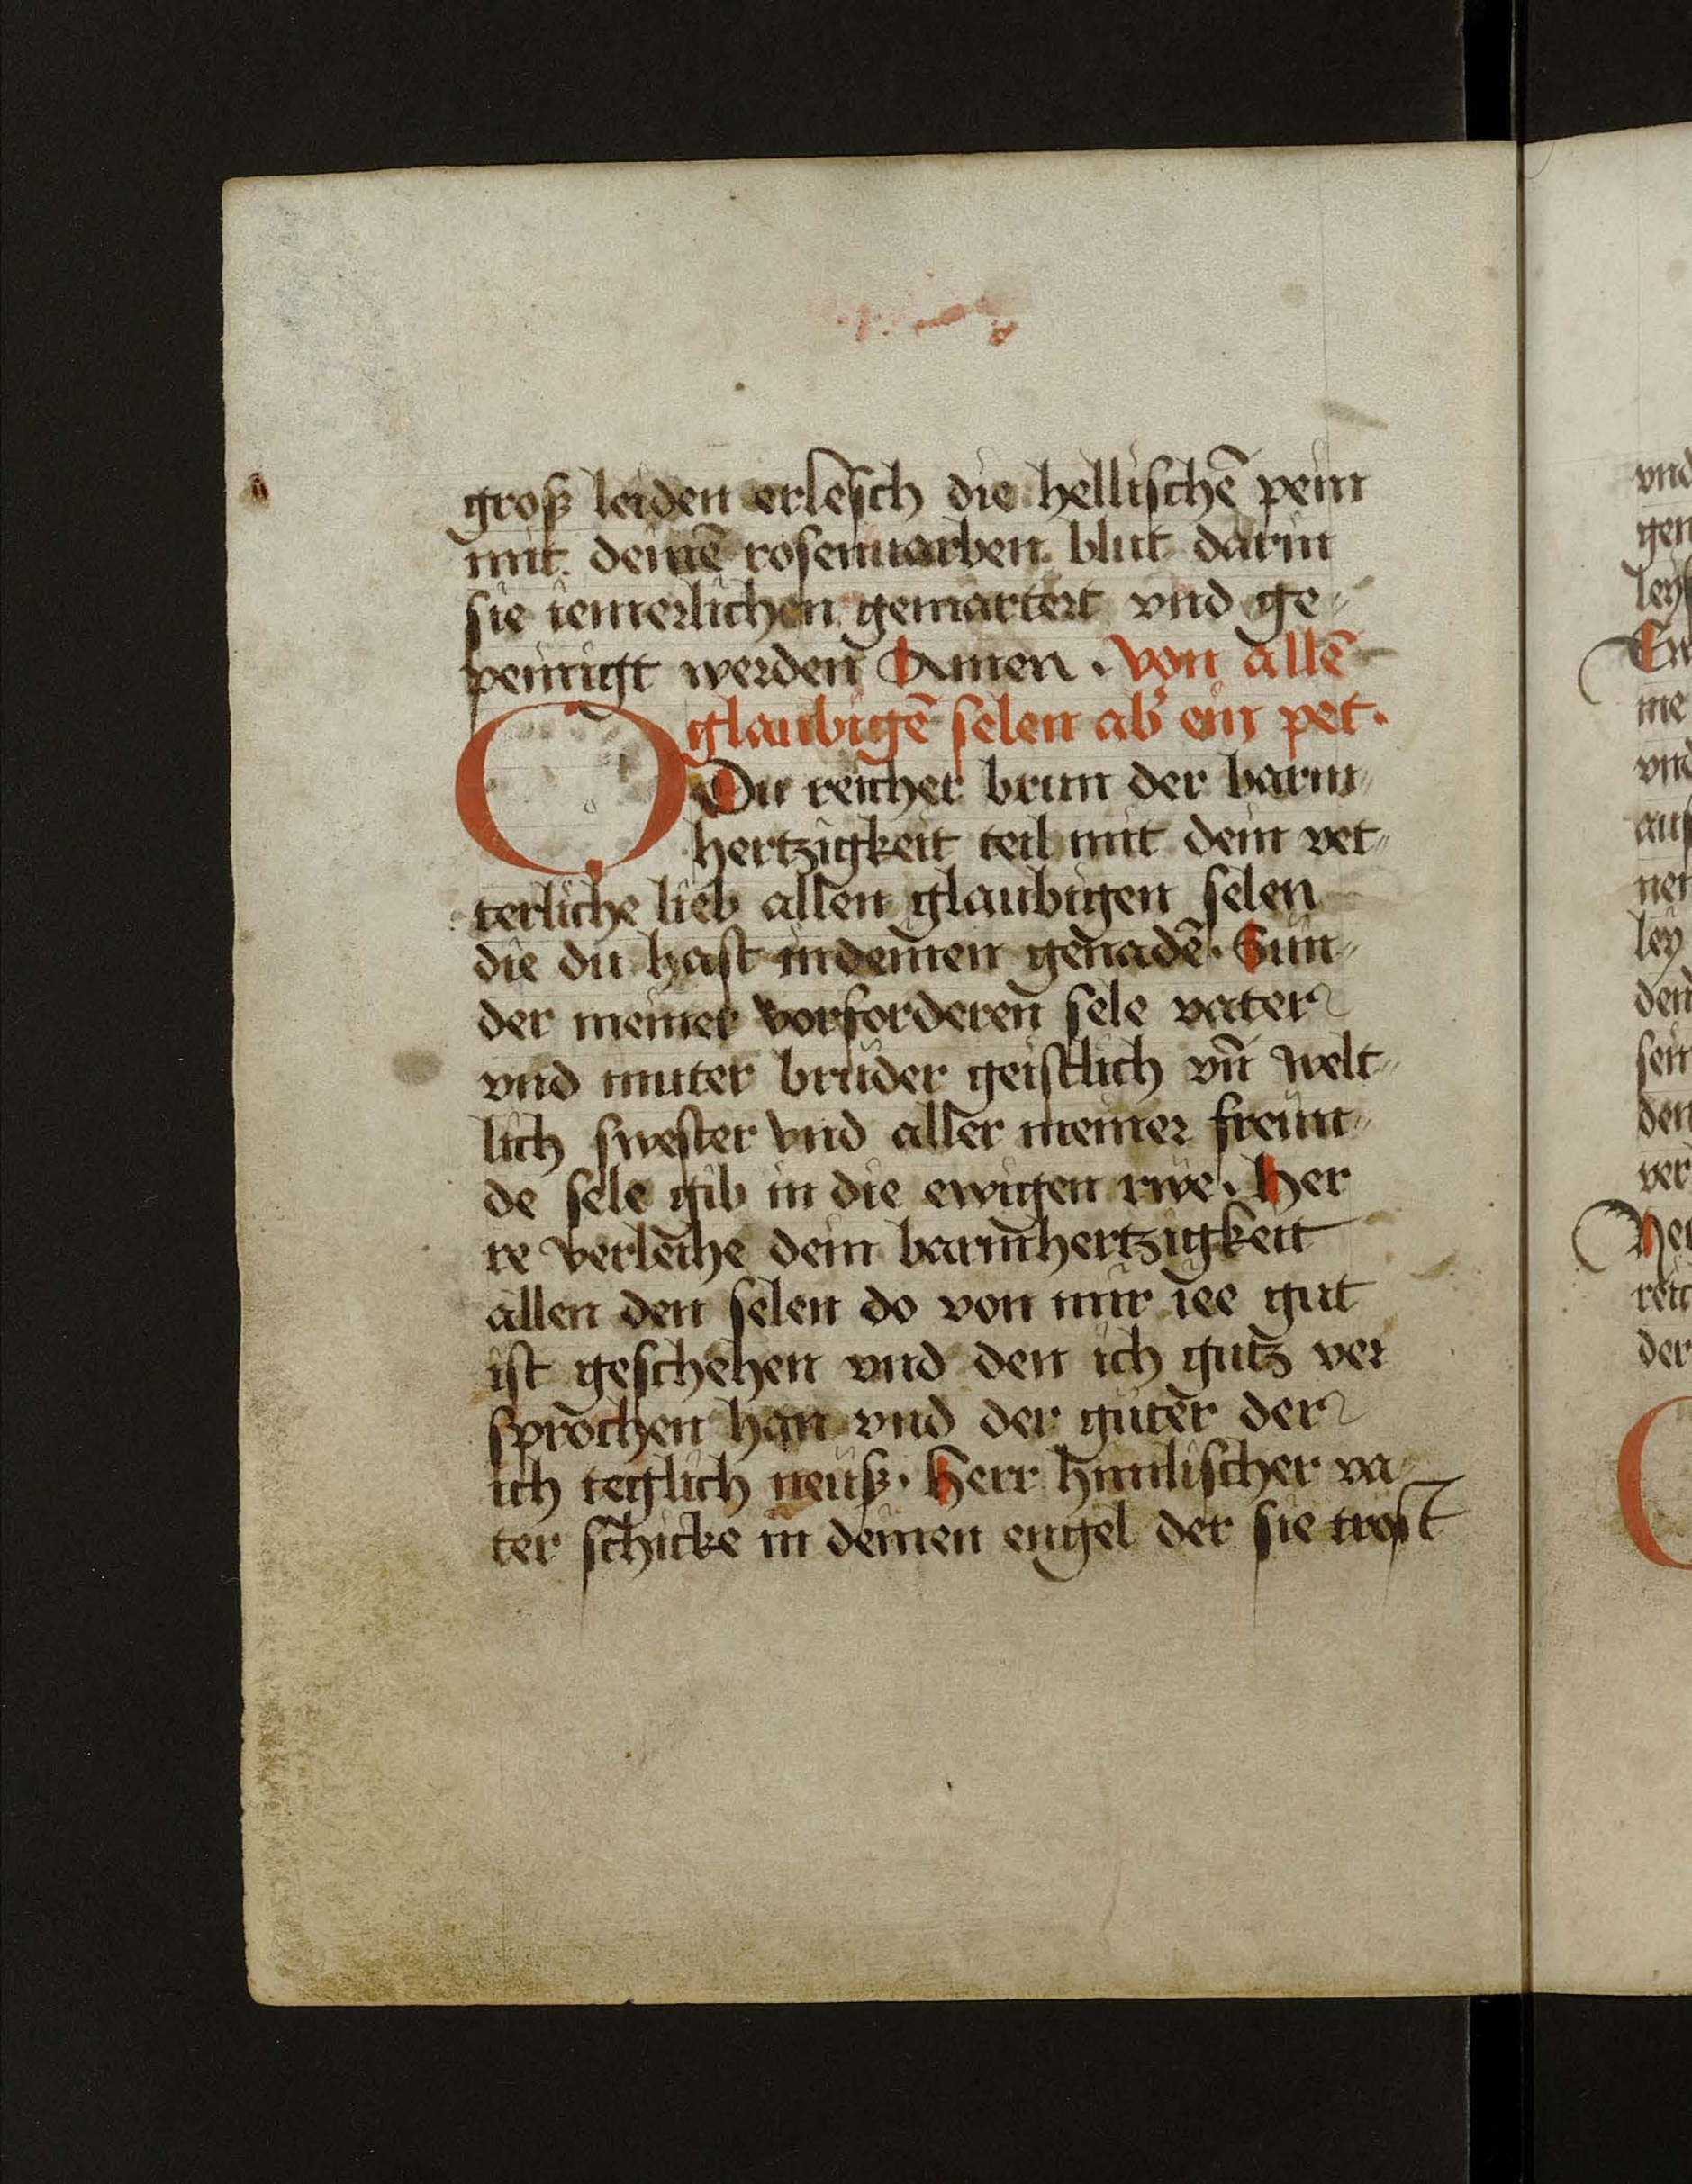 groß leiden erlesch die hellischē pein
mit deinē rosenuarben blut darin
sie iemerlichen gemartert vnd ge⸗
peinigt werden Amen . von allē
glaubigē selen ab̉ ein pet.
O Du reicher brun der barm⸗
hertzigkeit teil mit dein vet⸗
terliche lieb allen glaubigen selen
die du hast in deinen genadē . Sun⸗
der meiner vorforderen sele vater
vnd muter bruder geistlich vn̄ welt⸗
lich swester vnd aller meiner freün⸗
de sele gib in die ewigen rwe . Her
re verleihe dein barmhertzigkeit
allen den selen do von mir iee gut
ist geschehen vnd den ich gutz ver
sprochen han vnd der güter der
ich teglich neüß . Herr himlischer va
ter schicke in deinen engel der sie trost
vnd
gen
me
vnd
ley
den
sein
den
ver
der